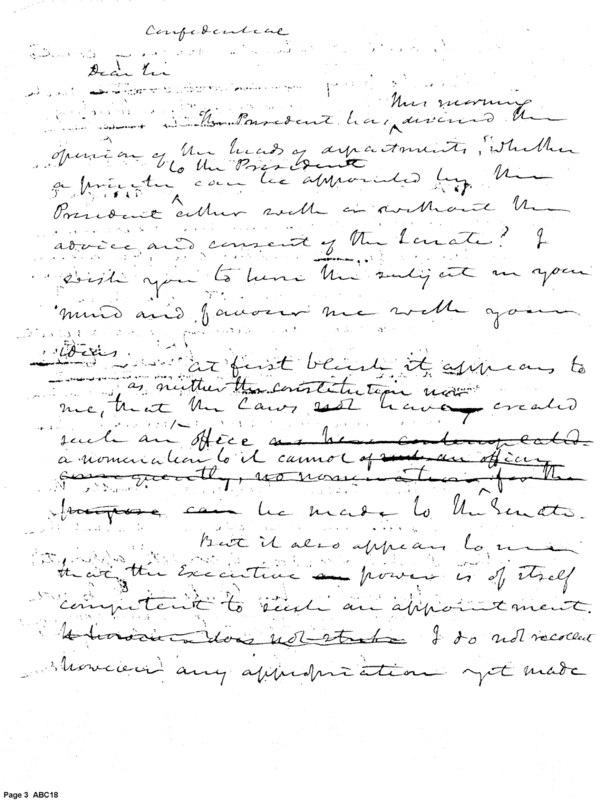 Confidential
Dear Sir
this morning
The President has desired the
opinion of the heads of departments, whether
to the President
a private can be appointed by the
President either with or without the
advice and consent of the Senate? I
wish you to turn the subject in your
mind and favour me with your
ideas.
at first blush it appears to
as neither the constitution nor
me, that the Laws not having created
such an office as here contemplated.
a nomination to it cannot of such an officer
consequently, no nomination for the
purpose can be made to the Senate.
But it also appears to me
that the Executive power is of itself
competent to such an appointment.
It however does not strike I do not recollect
however any appropriation yet made
Page 3 ABC18